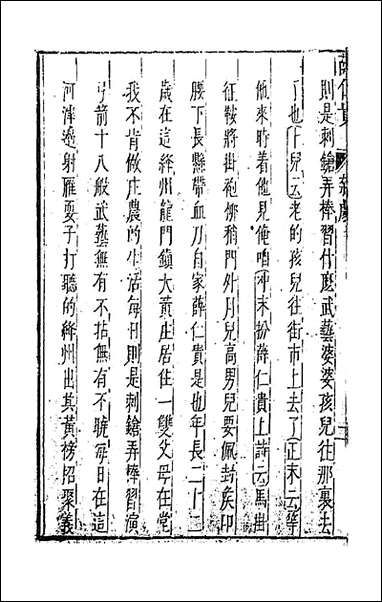 薛仁貴 雜劇 二
則是刺鎗弄棒習什麽武藝婆婆孩兒往那裏去
了也卜兒云老的孩兒往街市上去了正末云等
他來時着他見俺咱冲末扮薛仁貴上詩云馬掛
征鞍將掛袍柳梢門外月兒高男兒要佩封侯印
腰下長懸帶血刀自家薛仁貴是也年長二十二
歲在這絳州龍門鎮大黃庄居住一雙父母在堂
我不肯做庄農的生活每日則是刺鎗弄棒習演
弓箭十八般武藝無有不拈無有不曉每日在這
河津邊射雁耍子打聽的絳州出其黃榜招聚義